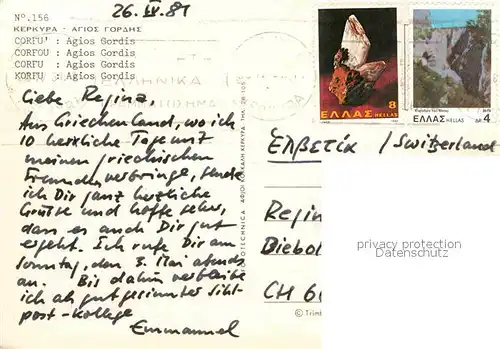 26. IV. 81
Nº. 156
ΚΕΡΚΥΡΑ - ΑΓΙΟΣ ΓΟΡΔΗΣ
CORFU' : Agios Gordis
CORFOU : Agios Gordis
CORFU : Agios Gordis
KORFU : Agios Gordis
Liebe Regina,
Aus Griechenland, wo ich
10 herrliche Tage mit
meinen griechischen
Freunden verbringe, sende
ich Dir ganz herzliche
Grüsse und hoffe sehr,
dass es auch Dir gut
ergeht. Ich rufe Dir am
Sonntag, den 3. Mai abends
an. Bis dahin verbleibe
ich als gut gesinnter Sihl-
post-Kollege
Emmanuel
ΕΛΛΑΣ HELLAS 8
ΕΛΛΑΣ HELLAS ΔΡ. 4
Ελβετία / Switzerland
Regin
Biebol
CH 60
privacy protection
Datenschutz
© Trimb